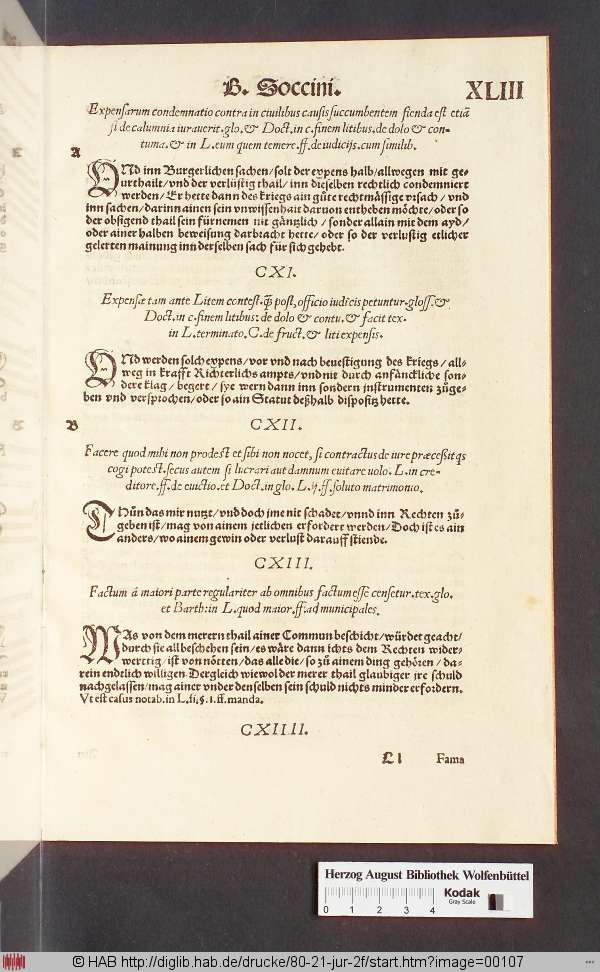 B. Soccini. XLIII
Expensarum condemnatio contra in ciuilibus causis succumbentem fienda est etiã
si de calumnia iurauerit. glo. & Doct. in c. finem litibus. de dolo & con-
tuma. & in L. eum quem temere. ff. de iudicijs. cum similib.
A
VNd inn Burgerlichen sachen / solt der expens halb / allwegen mit ge-
urthailt / vnd der verlüstig thail / inn dieselben rechtlich condemniert
werden / Er hette dann des kriegs ain gůte rechtmässige vrsach / vnd
inn sachen / darinn ainen sein vnwissenhait daruon entheben möchte / oder so
der obsigend thail sein fürnemen nit gäntzlich / sonder allain mit dem ayd /
oder ainer halben beweisung darbracht hette / oder so der verlustig etlicher
gelerten mainung inn der selben sach für sich gehebt.
CXI.
Expensæ tam ante Litem contest. q̃ post, officio iudicis petuntur. gloss. &
Doct. in c. finem litibus: de dolo & contu. & facit tex.
in L. terminato. C. de fruct. & liti expensis.
VNd werden solch expens / vor vnd nach beuestigung des kriegs / all-
weg in krafft Richterlichs ampts / vnd nit durch anfäncklliche son-
dere klag / begert / sye wern dann inn sondern instrumenten zůge-
ben vnd versprochen / oder so ain Statut deßhalb disposition hette.
B
CXII.
Facere quod mihi non prodest et sibi non nocet, si contractus de iure præceßit qs
cogi potest. secus autem si lucrari aut damnum euitare uolo. L. in cre-
ditore. ff. de euictio. et Doct. in glo. L. ij. ff. soluto matrimonio.
THůn das mir nutzt / vnd doch jme nit schadet / vnnd inn Rechten zů-
geben ist / mag von ainem jetlichen erfordert werden / Doch ist es ain
anders / wo ainem gewin oder verlust darauff stiende.
CXIII.
Factum á maiori parte regulariter ab omnibus factum esse censetur. tex. glo.
et Barth: in L. quod maior. ff. ad municipales.
WAs von dem merern thail ainer Commun beschicht / würdet geacht /
durch sie all beschehen sein / es wäre dann ichts dem Rechten wider-
werttig / ist von nötten / das alle die / so zů ainem ding gehören / da-
rein endtlich willigen Dergleich wiewol der merer thail glaubiger jre schuld
nachgelassen / mag ainer vnder den selben sein schuld nichts minder erfordern.
Vt est casus notab. in L. si §. 1. ff. manda.
CXIIII.
Ll Fama
Herzog August Bibliothek Wolfenbüttel
0 1 2 3 4
Kodak
Gray Scale
© HAB http://diglib.hab.de/drucke/80-21-jur-2f/start.htm?image=00107